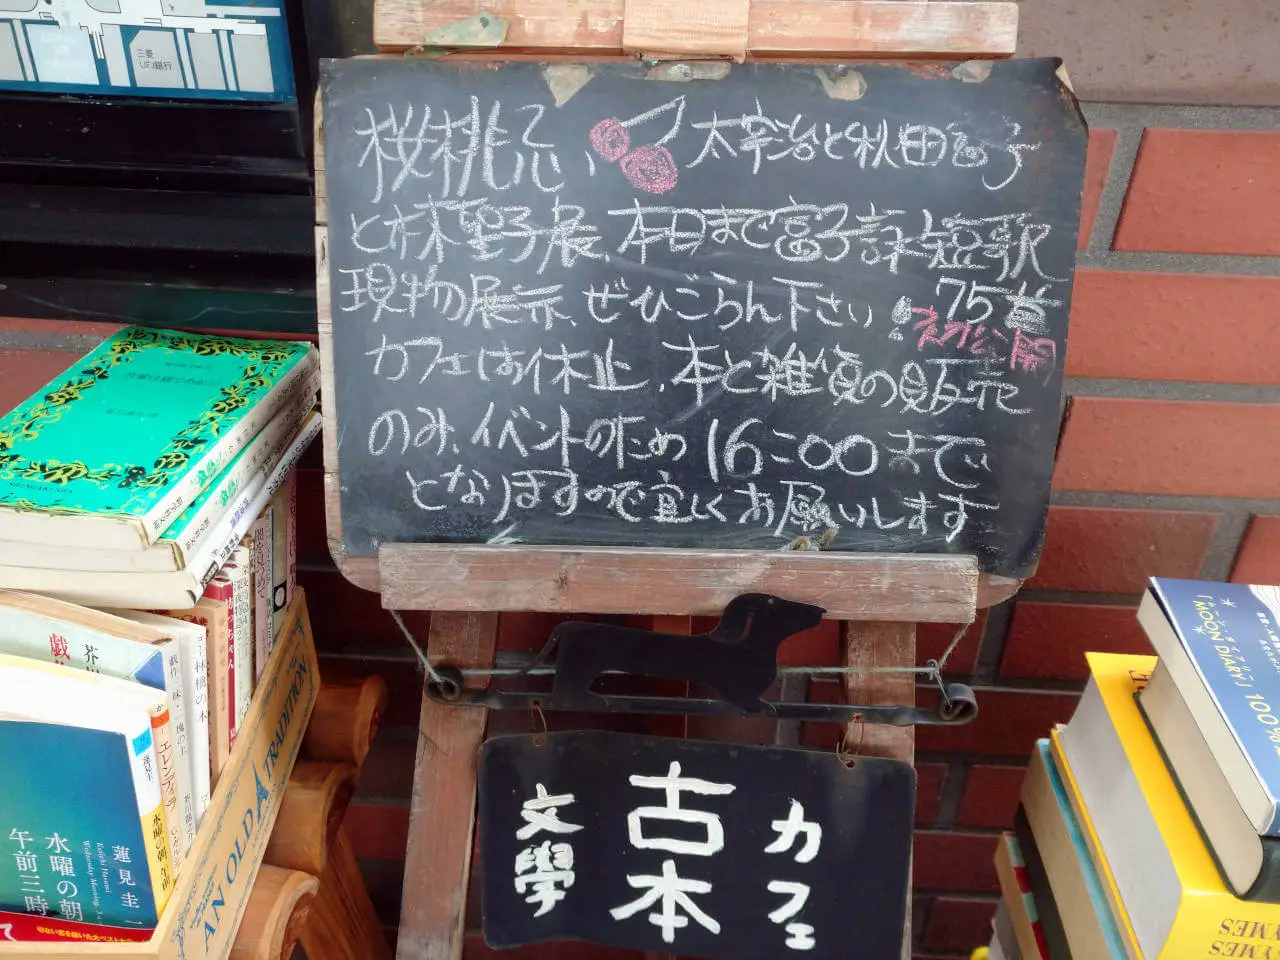 三菱
UFJ銀行
桜桃忌、太宰治と秋田富子
と林聖子展、本日まで富子詠短歌
現物展示、ぜひごらん下さい! 75首
初公開
カフェはお休止、本と雑貨の販売
のみ、イベントのため16:00まで
となりますので宜しくお願いします
文學
古本
カフェ
SHINGAKUSHA
AN OLDA TRADITION
蓮見圭一
水曜の朝、
午前三時
Keiichi Hasumi
エレンディラ
水曜の朝、午前
一塊の土
林檎の木
坊っちゃん
「MOON DIARY」
100%